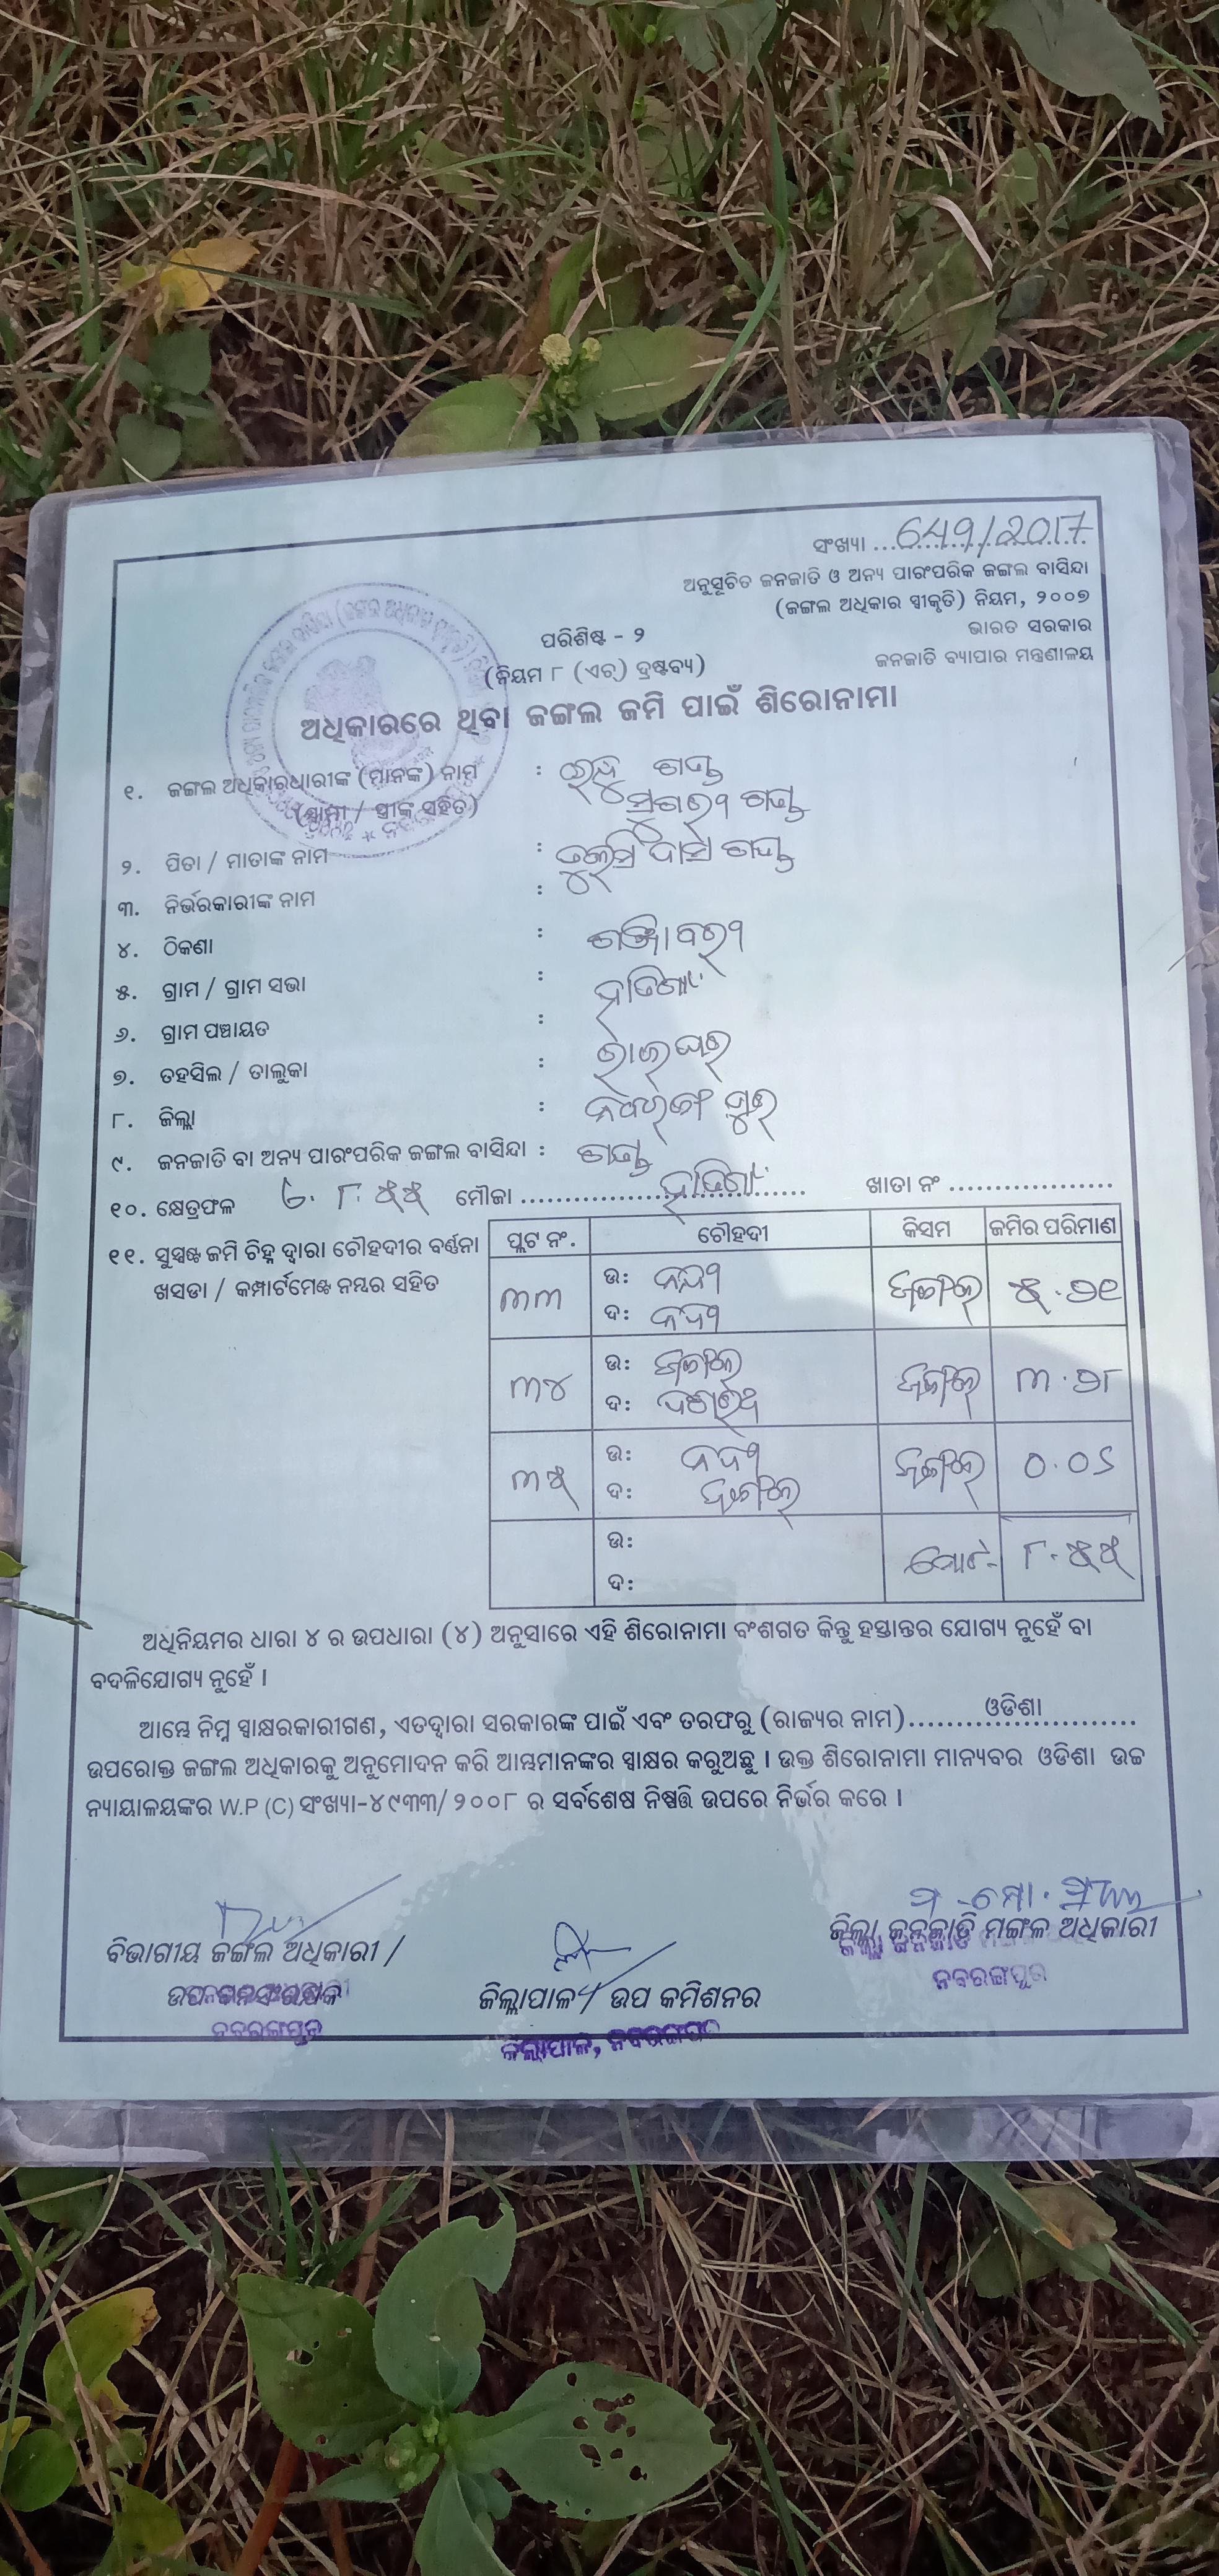 ସଂଖ୍ୟା ...649/2017
ଅନୁସୂଚିତ ଜନଜାତି ଓ ଅନ୍ୟ ପାରଂପରିକ ଜଙ୍ଗଲ ବାସିନ୍ଦା
(ଜଙ୍ଗଲ ଅଧିକାର ସ୍ୱୀକୃତି) ନିୟମ, ୨୦୦୭
ପରିଶିଷ୍ଟ - ୨
ଭାରତ ସରକାର
(ନିୟମ ୮ (ଏଚ୍) ଦ୍ରଷ୍ଟବ୍ୟ)
ଜନଜାତି ବ୍ୟାପାର ମନ୍ତ୍ରଣାଳୟ
ଅଧିକାରରେ ଥିବା ଜଙ୍ଗଲ ଜମି ପାଇଁ ଶିରୋନାମା
୧. ଜଙ୍ଗଲ ଅଧିକାରଧାରୀଙ୍କ (ମାନଙ୍କ) ନାମ : ଗଣ୍ଡ
(ସ୍ୱାମୀ / ସ୍ତ୍ରୀଙ୍କ ସହିତ) ଗଣ୍ଡ
୨. ପିତା / ମାତାଙ୍କ ନାମ : ଦାସ ଗଣ୍ଡ
୩. ନିର୍ଭରକାରୀଙ୍କ ନାମ :
୪. ଠିକଣା :
୫. ଗ୍ରାମ / ଗ୍ରାମ ସଭା :
୬. ଗ୍ରାମ ପଞ୍ଚାୟତ :
୭. ତହସିଲ / ତାଲୁକା : ରାଇଘର
୮. ଜିଲ୍ଲା : ନବରଙ୍ଗପୁର
୯. ଜନଜାତି ବା ଅନ୍ୟ ପାରଂପରିକ ଜଙ୍ଗଲ ବାସିନ୍ଦା : ଗଣ୍ଡ
୧୦. କ୍ଷେତ୍ରଫଳ ୮.୫୫ ମୌଜା .......... ଖାତା ନଂ ..........
୧୧. ସୁସ୍ପଷ୍ଟ ଜମି ଚିହ୍ନ ଦ୍ୱାରା ଚୌହଦୀର ବର୍ଣ୍ଣନା
ଖସଡା / କମ୍ପାର୍ଟମେଣ୍ଟ ନମ୍ବର ସହିତ
ପ୍ଲଟ ନଂ. ଚୌହଦୀ କିସମ ଜମିର ପରିମାଣ
୩୩ ଉ: ନଦୀ ଜଙ୍ଗଲ ୫.୨୧
ଦ: ନଦୀ
୩୪ ଉ: ଜଙ୍ଗଲ ଜଙ୍ଗଲ ୩.୨୮
ଦ: ଦଶରଥ
୩୫ ଉ: ନଦୀ ଜଙ୍ଗଲ ୦.୦୬
ଦ: ଜଙ୍ଗଲ
ଉ: ମୋଟ- ୮.୫୫
ଦ:
ଅଧିନିୟମର ଧାରା ୪ ର ଉପଧାରା (୪) ଅନୁସାରେ ଏହି ଶିରୋନାମା ବଂଶଗତ କିନ୍ତୁ ହସ୍ତାନ୍ତର ଯୋଗ୍ୟ ନୁହେଁ ବା
ବଦଳିଯୋଗ୍ୟ ନୁହେଁ ।
ଆମ୍ଭେ ନିମ୍ନ ସ୍ୱାକ୍ଷରକାରୀଗଣ, ଏତଦ୍ୱାରା ସରକାରଙ୍କ ପାଇଁ ଏବଂ ତରଫରୁ (ରାଜ୍ୟର ନାମ)..........ଓଡିଶା..........
ଉପରୋକ୍ତ ଜଙ୍ଗଲ ଅଧିକାରକୁ ଅନୁମୋଦନ କରି ଆମ୍ଭମାନଙ୍କର ସ୍ୱାକ୍ଷର କରୁଅଛୁ । ଉକ୍ତ ଶିରୋନାମା ମାନ୍ୟବର ଓଡିଶା ଉଚ୍ଚ
ନ୍ୟାୟାଳୟଙ୍କର W.P (C) ସଂଖ୍ୟା-୪୯୩୩/୨୦୦୮ ର ସର୍ବଶେଷ ନିଷ୍ପତ୍ତି ଉପରେ ନିର୍ଭର କରେ ।
ଜିଲ୍ଲା ଜନଜାତି ମଙ୍ଗଳ ଅଧିକାରୀ
ନବରଙ୍ଗପୁର
ବିଭାଗୀୟ ଜଙ୍ଗଲ ଅଧିକାରୀ /
ଉପ ବନସଂରକ୍ଷକ
ନବରଙ୍ଗପୁର
ଜିଲ୍ଲାପାଳ / ଉପ କମିଶନର
ଜିଲ୍ଲାପାଳ, ନବରଙ୍ଗପୁର